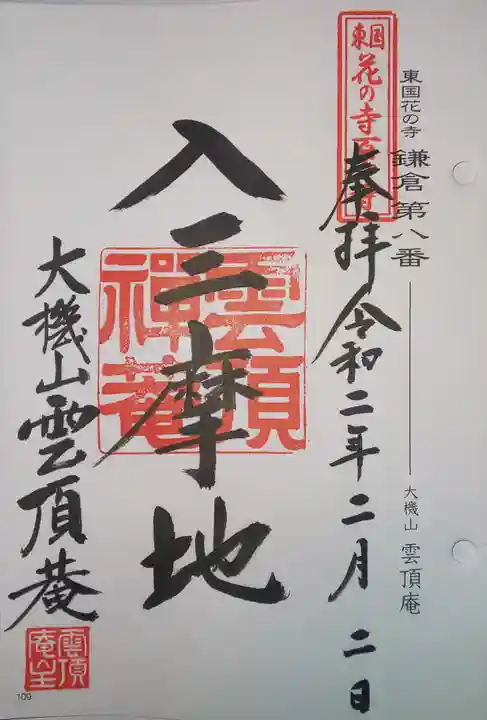 東国花の寺 鎌倉第八番
大機山 雲頂庵
東国花の寺百ヶ寺
奉拝 令和二年二月二日
入三摩地
雲頂禅菴
大機山雲頂菴
雲頂庵主
109